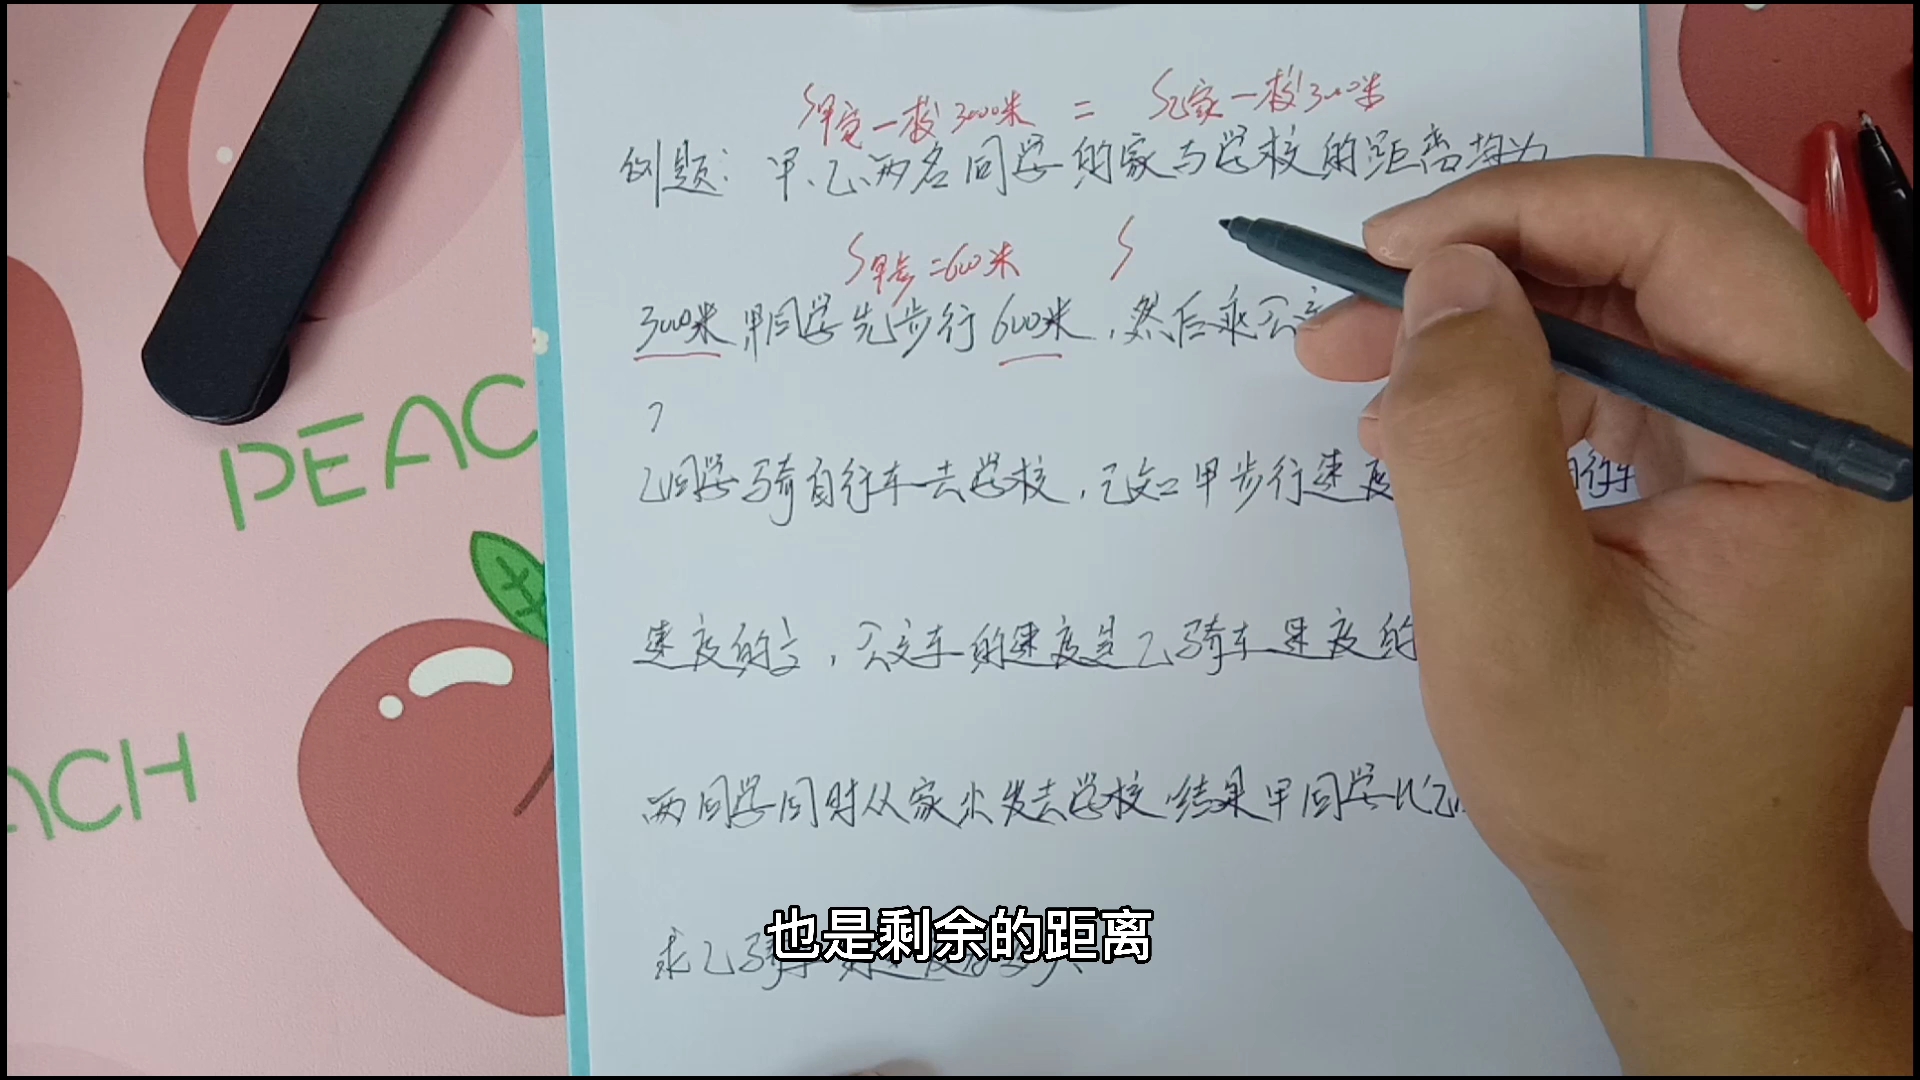 S甲家—校3000米 = S乙家—校3000米
例题: 甲、乙两名同学的家与学校的距离均为
S甲步=600米 S
3000米,甲同学先步行600米,然后乘公交
乙同学骑自行车去学校,已知甲步行速度
速度的,公交车的速度是乙骑车速度的
两同学同时从家出发去学校,结果甲同学比乙
求乙骑
也是剩余的距离
PEAC
ACH